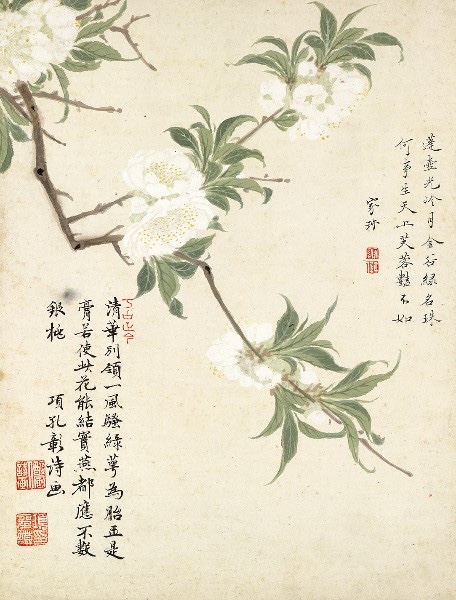 蓬壺光冷月金谷綠名珠
何事生天上芙蓉艷不如
家珍
清華別領一風騷綠萼為胎玉是
膏若使此花能結實燕都應不數
銀桃 項孔彰詩画